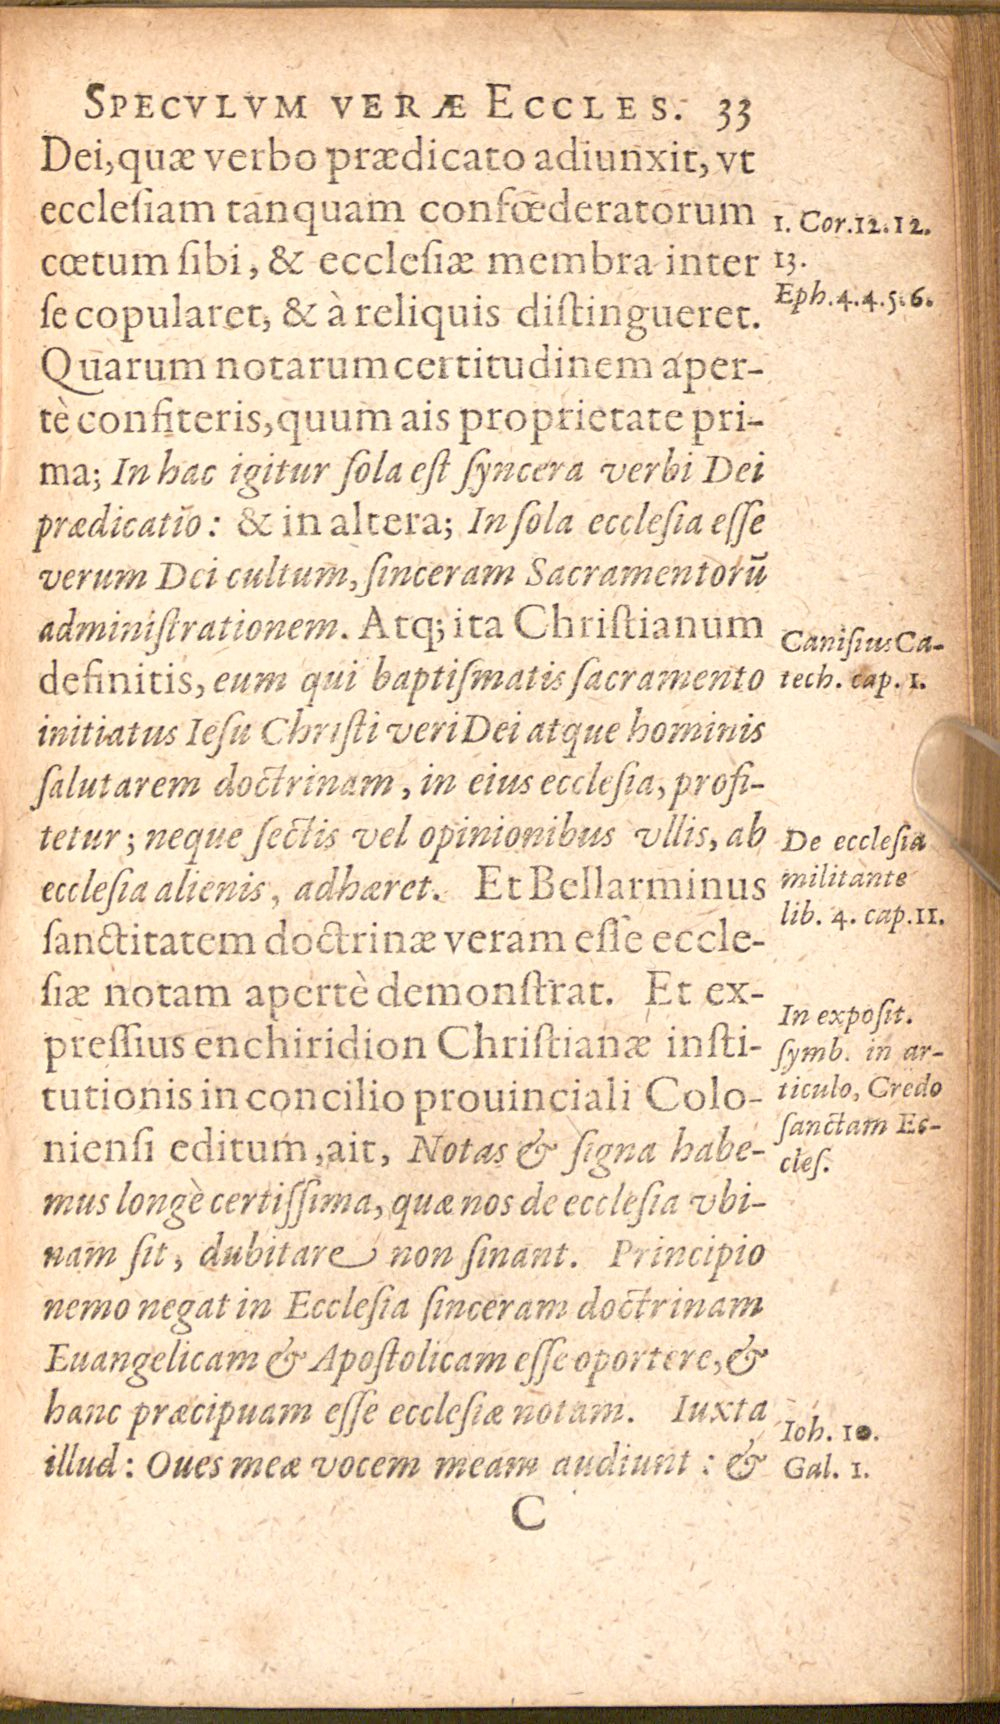 SPECVLVM VERÆ ECCLES. 33
Dei,quæ verbo prædicato adiunxit, vt
eccleſiam tanquam confœderatorum
cœtum ſibi, & eccleſiæ membra inter
ſe copularet, & à reliquis diſtingueret.
Quarum notarum certitudinem aper-
tè confiteris,quum ais proprietate pri-
ma; In hac igitur ſola eſt ſyncera verbi Dei
prædicatio: & in altera; In ſola eccleſia eſſe
verum Dei cultum, ſinceram Sacramentorū
adminiſtrationem. Atq; ita Chriſtianum
definitis, eum qui baptiſmatis ſacramento
initiatus Ieſu Chriſti veri Dei atque hominis
ſalutarem doctrinam, in eius eccleſia, profi-
tetur; neque ſectis vel opinionibus vllis, ab
eccleſia alienis, adhæret. Et Bellarminus
ſanctitatem doctrinæ veram eſſe eccle-
ſiæ notam apertè demonſtrat. Et ex-
preſſius enchiridion Chriſtianæ inſti-
tutionis in concilio prouinciali Colo-
nienſi editum, ait, Notas & ſigna habe-
mus longè certiſſima, quæ nos de eccleſia vbi-
nam ſit, dubitare non ſinant. Principio
nemo negat in Eccleſia ſinceram doctrinam
Euangelicam & Apoſtolicam eſſe oportere, &
hanc præcipuam eſſe eccleſiæ notam. Iuxta
illud: Oues meæ vocem meam audiunt: &
C
1. Cor.12.12.
13.
Eph.4.4.5.6.
Caniſius Ca-
tech. cap. 1.
De eccleſia
militante
lib. 4. cap.11.
In expoſit.
ſymb. in ar-
ticulo, Credo
ſanctam Ec-
cleſ.
Ioh. 10.
Gal. 1.